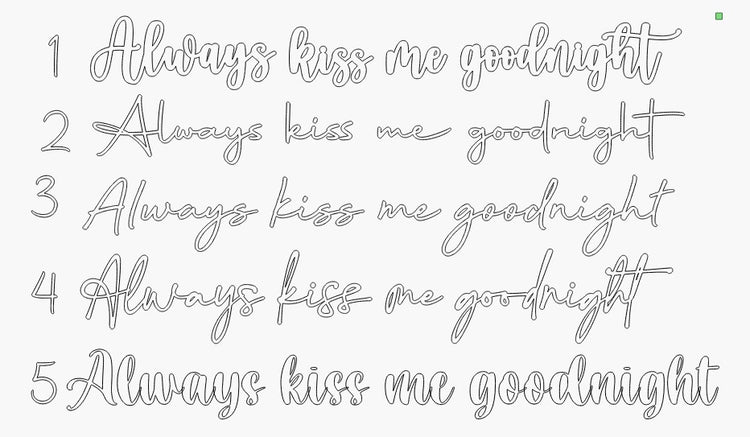 1 Always kiss me goodnight
2 Always kiss me goodnight
3 Always kiss me goodnight
4 Always kiss me goodnight
5 Always kiss me goodnight